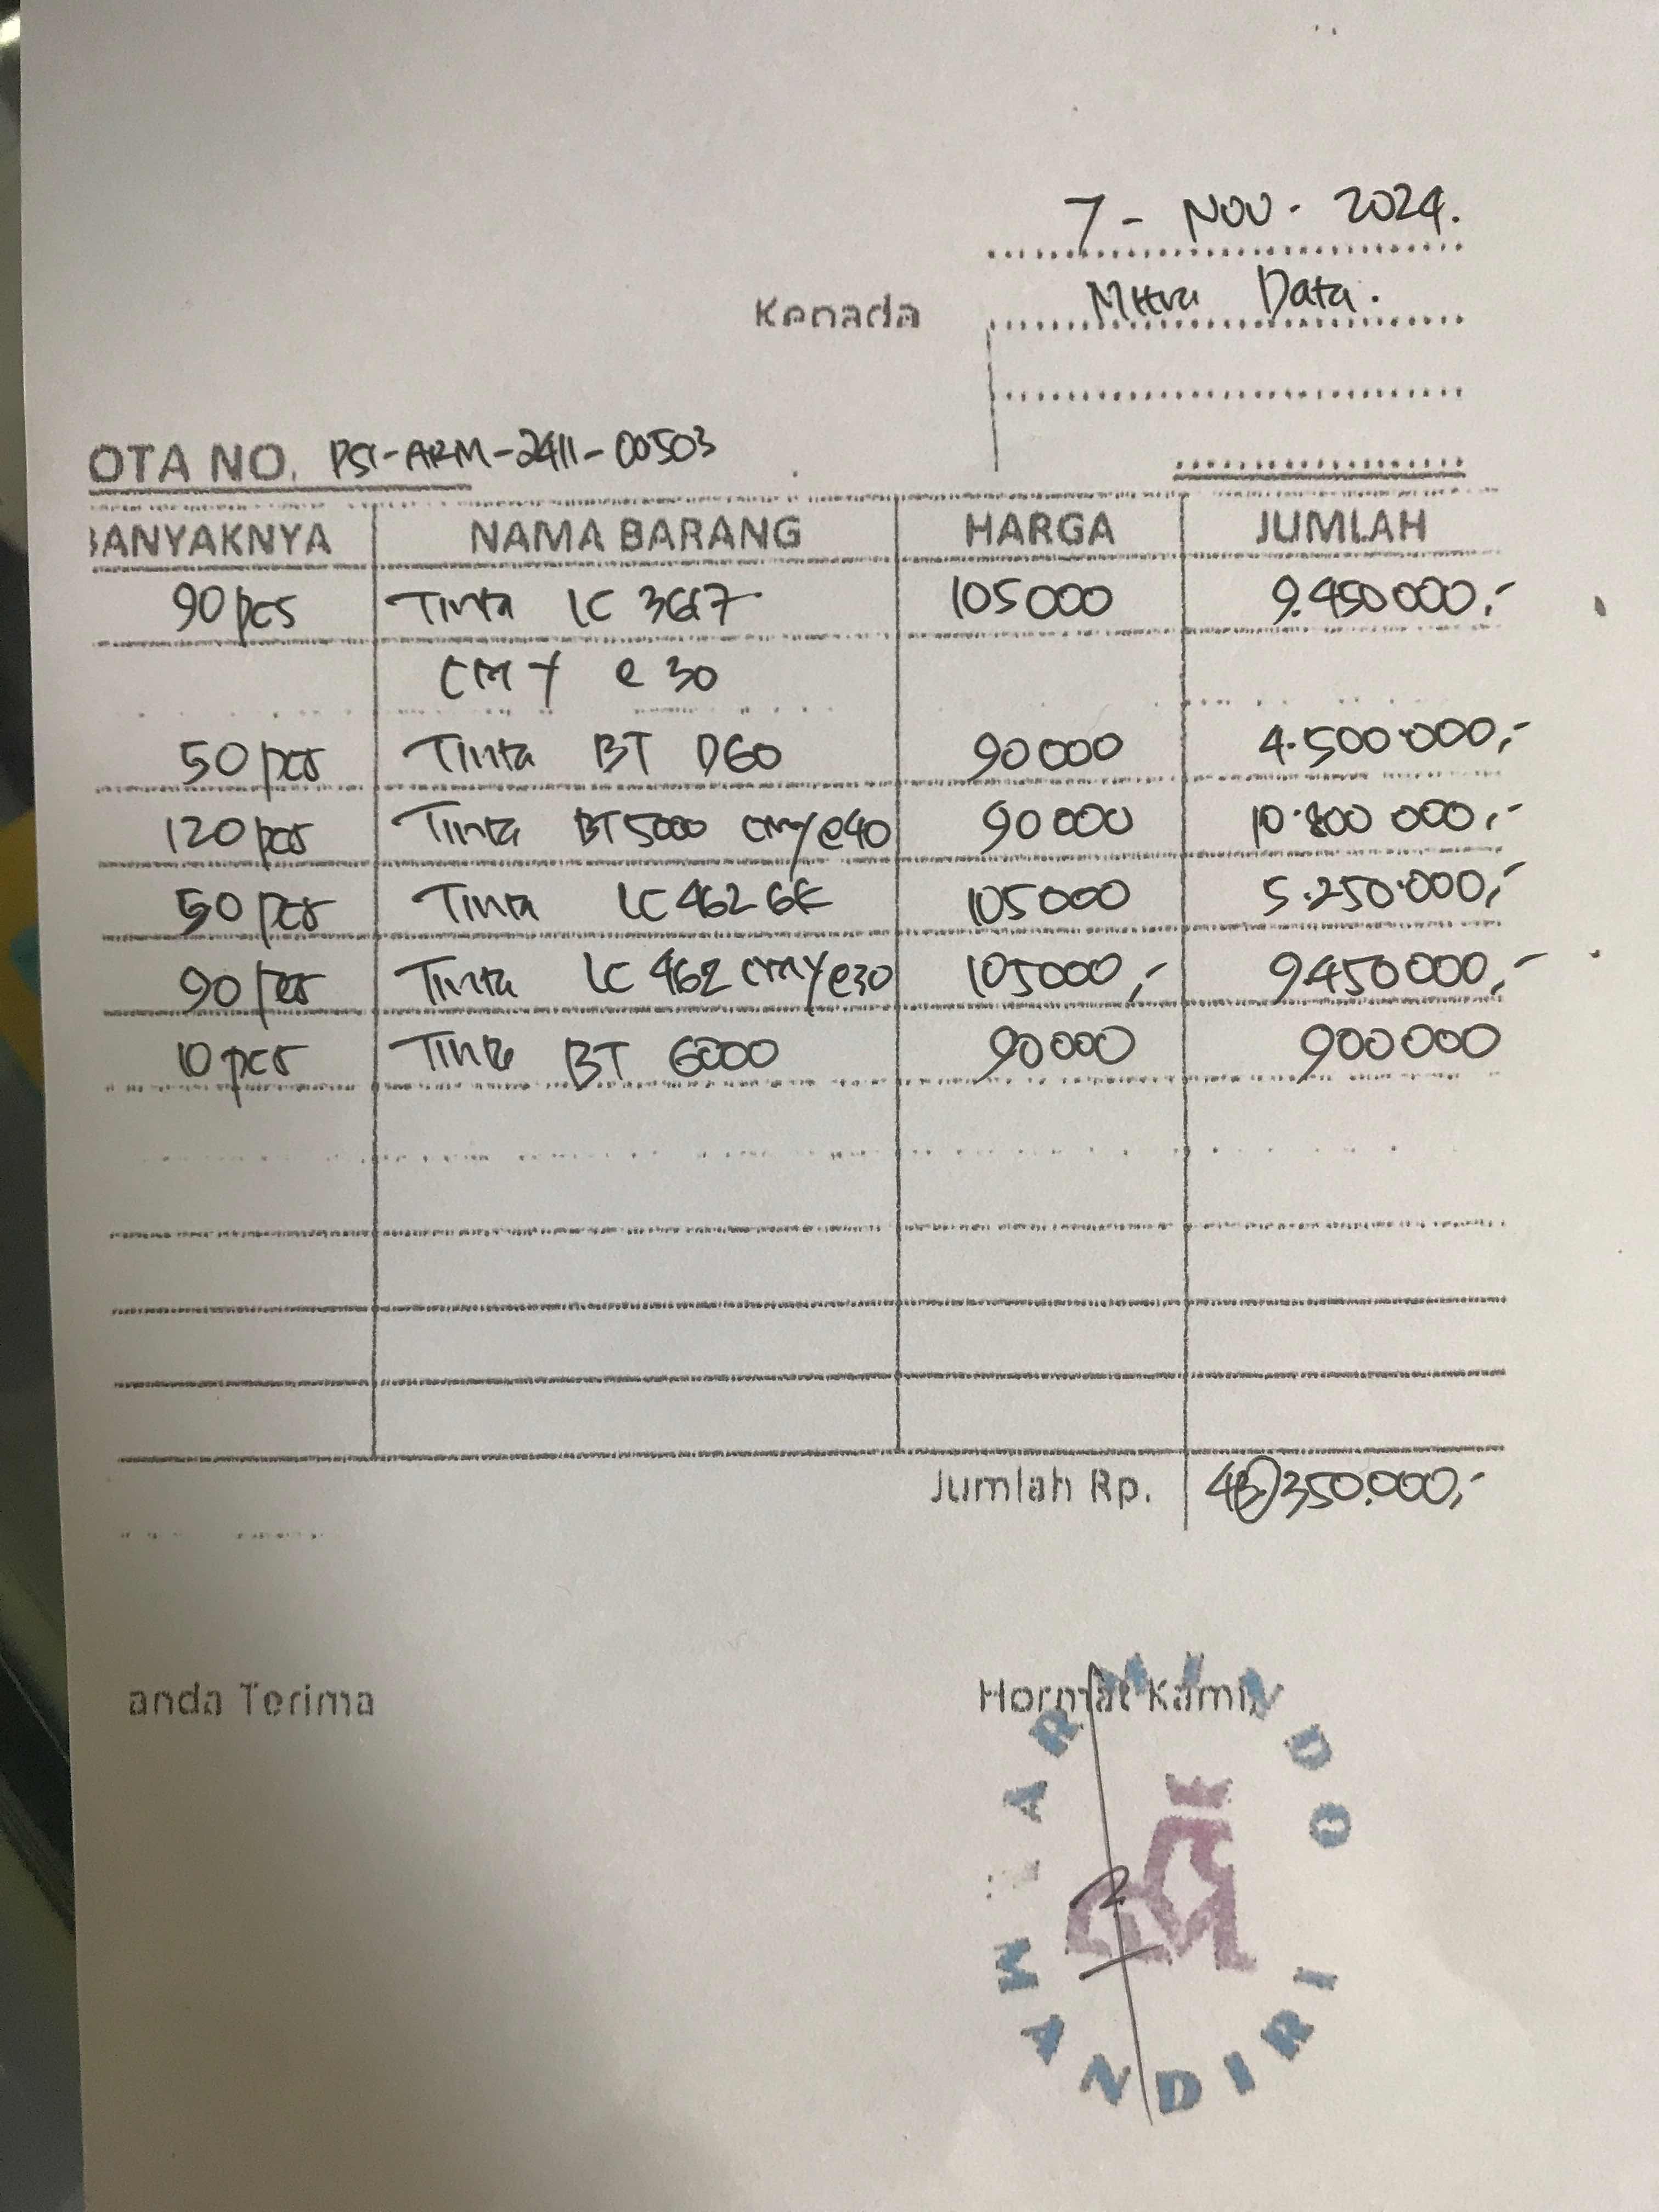 7 - NOV - 2024.
Kepada Mitra Data.
OTA NO. PSI-ARM-2411-00503
BANYAKNYA NAMA BARANG HARGA JUMLAH
90 pcs Tinta LC 3617 105000 9.450000,-
CMY @ 30
50 pcs Tinta BT D60 90000 4.500.000,-
120 pcs Tinta BT5000 CMY @40 90000 10.800 000,-
50 pcs Tinta LC 462 BK 105000 5.250.000,-
90 pcs Tinta LC 462 CMY @30 105000,- 9.450000,-
10 pcs Tinta BT 6000 90000 900000
Jumlah Rp. 350.000,-
anda Terima Hormat Kami,
MANDIRI